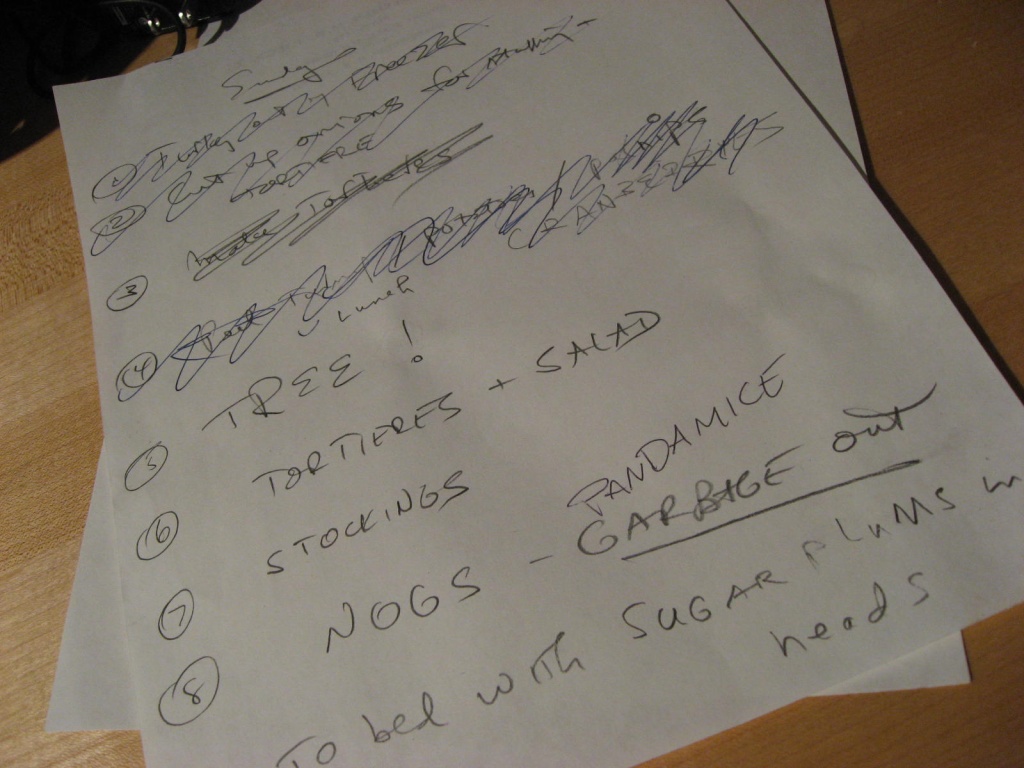 Sunday
① Turkey out of Freezer
② Cut up onions for stuffing -
TORTIERE
③ make Tortieres
④
CRANBERRIES
Lunch
⑤ TREE !
⑥ TORTIERES + SALAD
⑦ STOCKINGS PANDAMICE
⑧ NOGS - GARBAGE out
To bed with SUGAR PLUMS in
heads